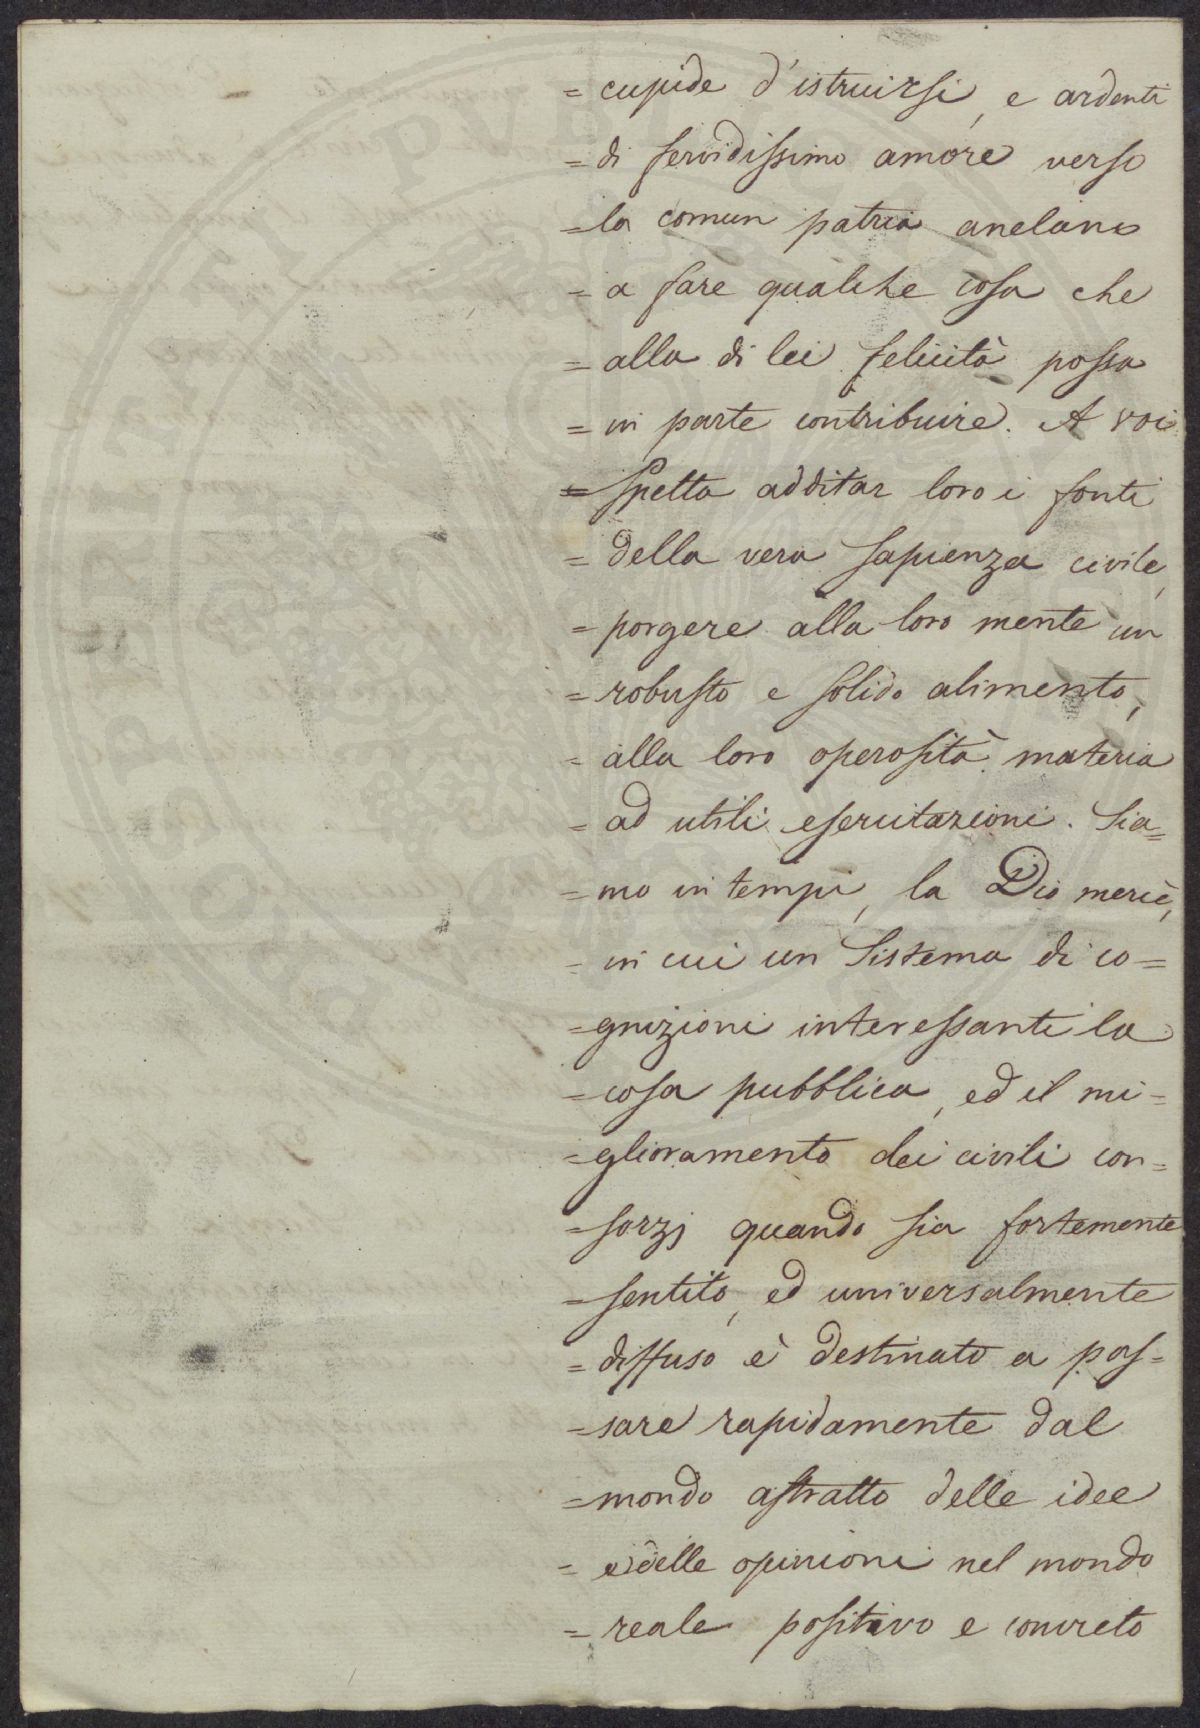 = cupide d'istruirsi, e ardenti
= di fervidissimo amore verso
= la comun patria anelano
= a fare qualche cosa che
= alla di lei felicità possa
= in parte contribuire. A voi
= spetta additar loro i fonti
= della vera sapienza civile,
= porgere alla loro mente un
= robusto e solido alimento,
= alla loro operosità materia
= ad utili esercitazioni. Sia=
= mo in tempi, la Dio mercè,
= in cui un Sistema di co=
= gnizioni interessanti la
= cosa pubblica, ed il mi=
= glioramento dei civili con=
= sorzj quando sia fortemente
= sentito, ed universalmente
= diffuso è destinato a pas=
= sare rapidamente dal
= mondo astratto delle idee
= e delle opinioni nel mondo
= reale positivo e concreto